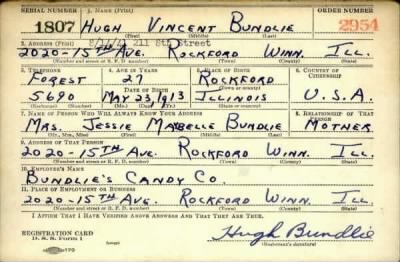 SERIAL NUMBER 1. NAME (Print) ORDER NUMBER
1807 HUGH VINCENT BUNDLIE 2954
(First) (Middle) (Last)
2. ADDRESS (Print) 211 8th Street
2020-15TH AVE. ROCKFORD WINN. ILL.
(Number and street or R. F. D. number) (Town) (County) (State)
3. TELEPHONE 4. AGE IN YEARS 5. PLACE OF BIRTH 6. COUNTRY OF CITIZENSHIP
FOREST 27 ROCKFORD
DATE OF BIRTH (Town or county)
5690 MAY 23, 1913 ILLINOIS U.S.A.
(Exchange) (Number) (Mo.) (Day) (Yr.) (State or country)
7. NAME OF PERSON WHO WILL ALWAYS KNOW YOUR ADDRESS 8. RELATIONSHIP OF THAT PERSON
MRS. JESSIE MABELLE BUNDLIE MOTHER
(Mr., Mrs., Miss) (First) (Middle) (Last)
9. ADDRESS OF THAT PERSON
2020-15TH AVE. ROCKFORD WINN. ILL.
(Number and street or R. F. D. number) (Town) (County) (State)
10. EMPLOYER'S NAME
BUNDLIE'S CANDY CO.
11. PLACE OF EMPLOYMENT OR BUSINESS
2020-15TH AVE. ROCKFORD WINN. ILL.
(Number and street or R. F. D. number) (Town) (County) (State)
I AFFIRM THAT I HAVE VERIFIED ABOVE ANSWERS AND THAT THEY ARE TRUE.
REGISTRATION CARD
D. S. S. Form 1 Hugh Bundlie
(Registrant's signature)